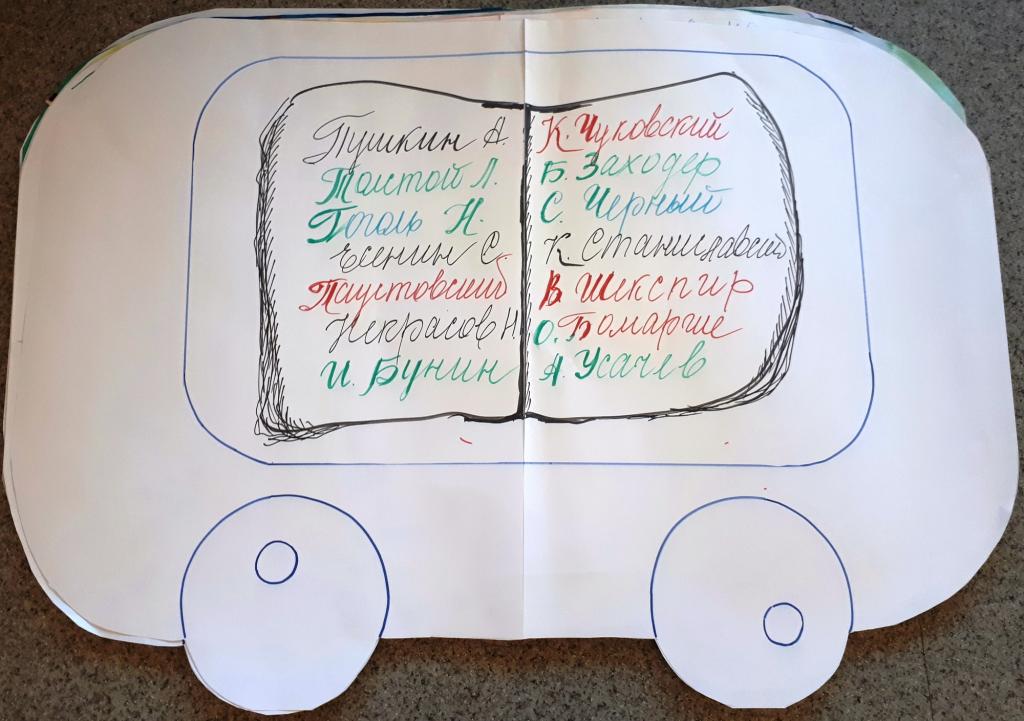 Пушкин А.
Толстой Л.
Гоголь Н.
Есенин С.
Паустовский
Некрасов Н.
И. Бунин
К. Чуковский
Б. Заходер
С. Черный
К. Станиславский
В. Шекспир
О. Бомарше
А. Усачев